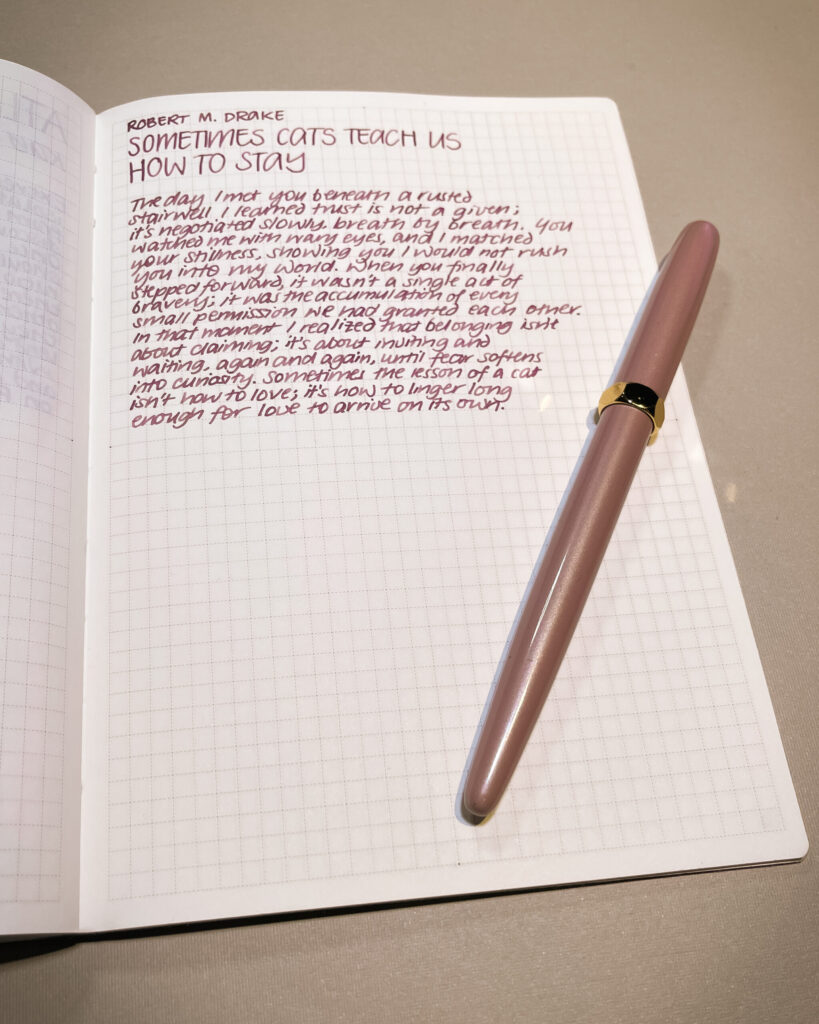 ROBERT M. DRAKE
SOMETIMES CATS TEACH US
HOW TO STAY
The day I met you beneath a rusted
stairwell I learned trust is not a given;
it's negotiated slowly, breath by breath. You
watched me with wary eyes, and I matched
your stillness, showing you I would not rush
you into my world. When you finally
stepped forward, it wasn't a single act of
bravery; it was the accumulation of every
small permission we had granted each other.
In that moment I realized that belonging isn't
about claiming; it's about inviting and
waiting, again and again, until fear softens
into curiosity. Sometimes the lesson of a cat
isn't how to love; it's how to linger long
enough for love to arrive on its own.